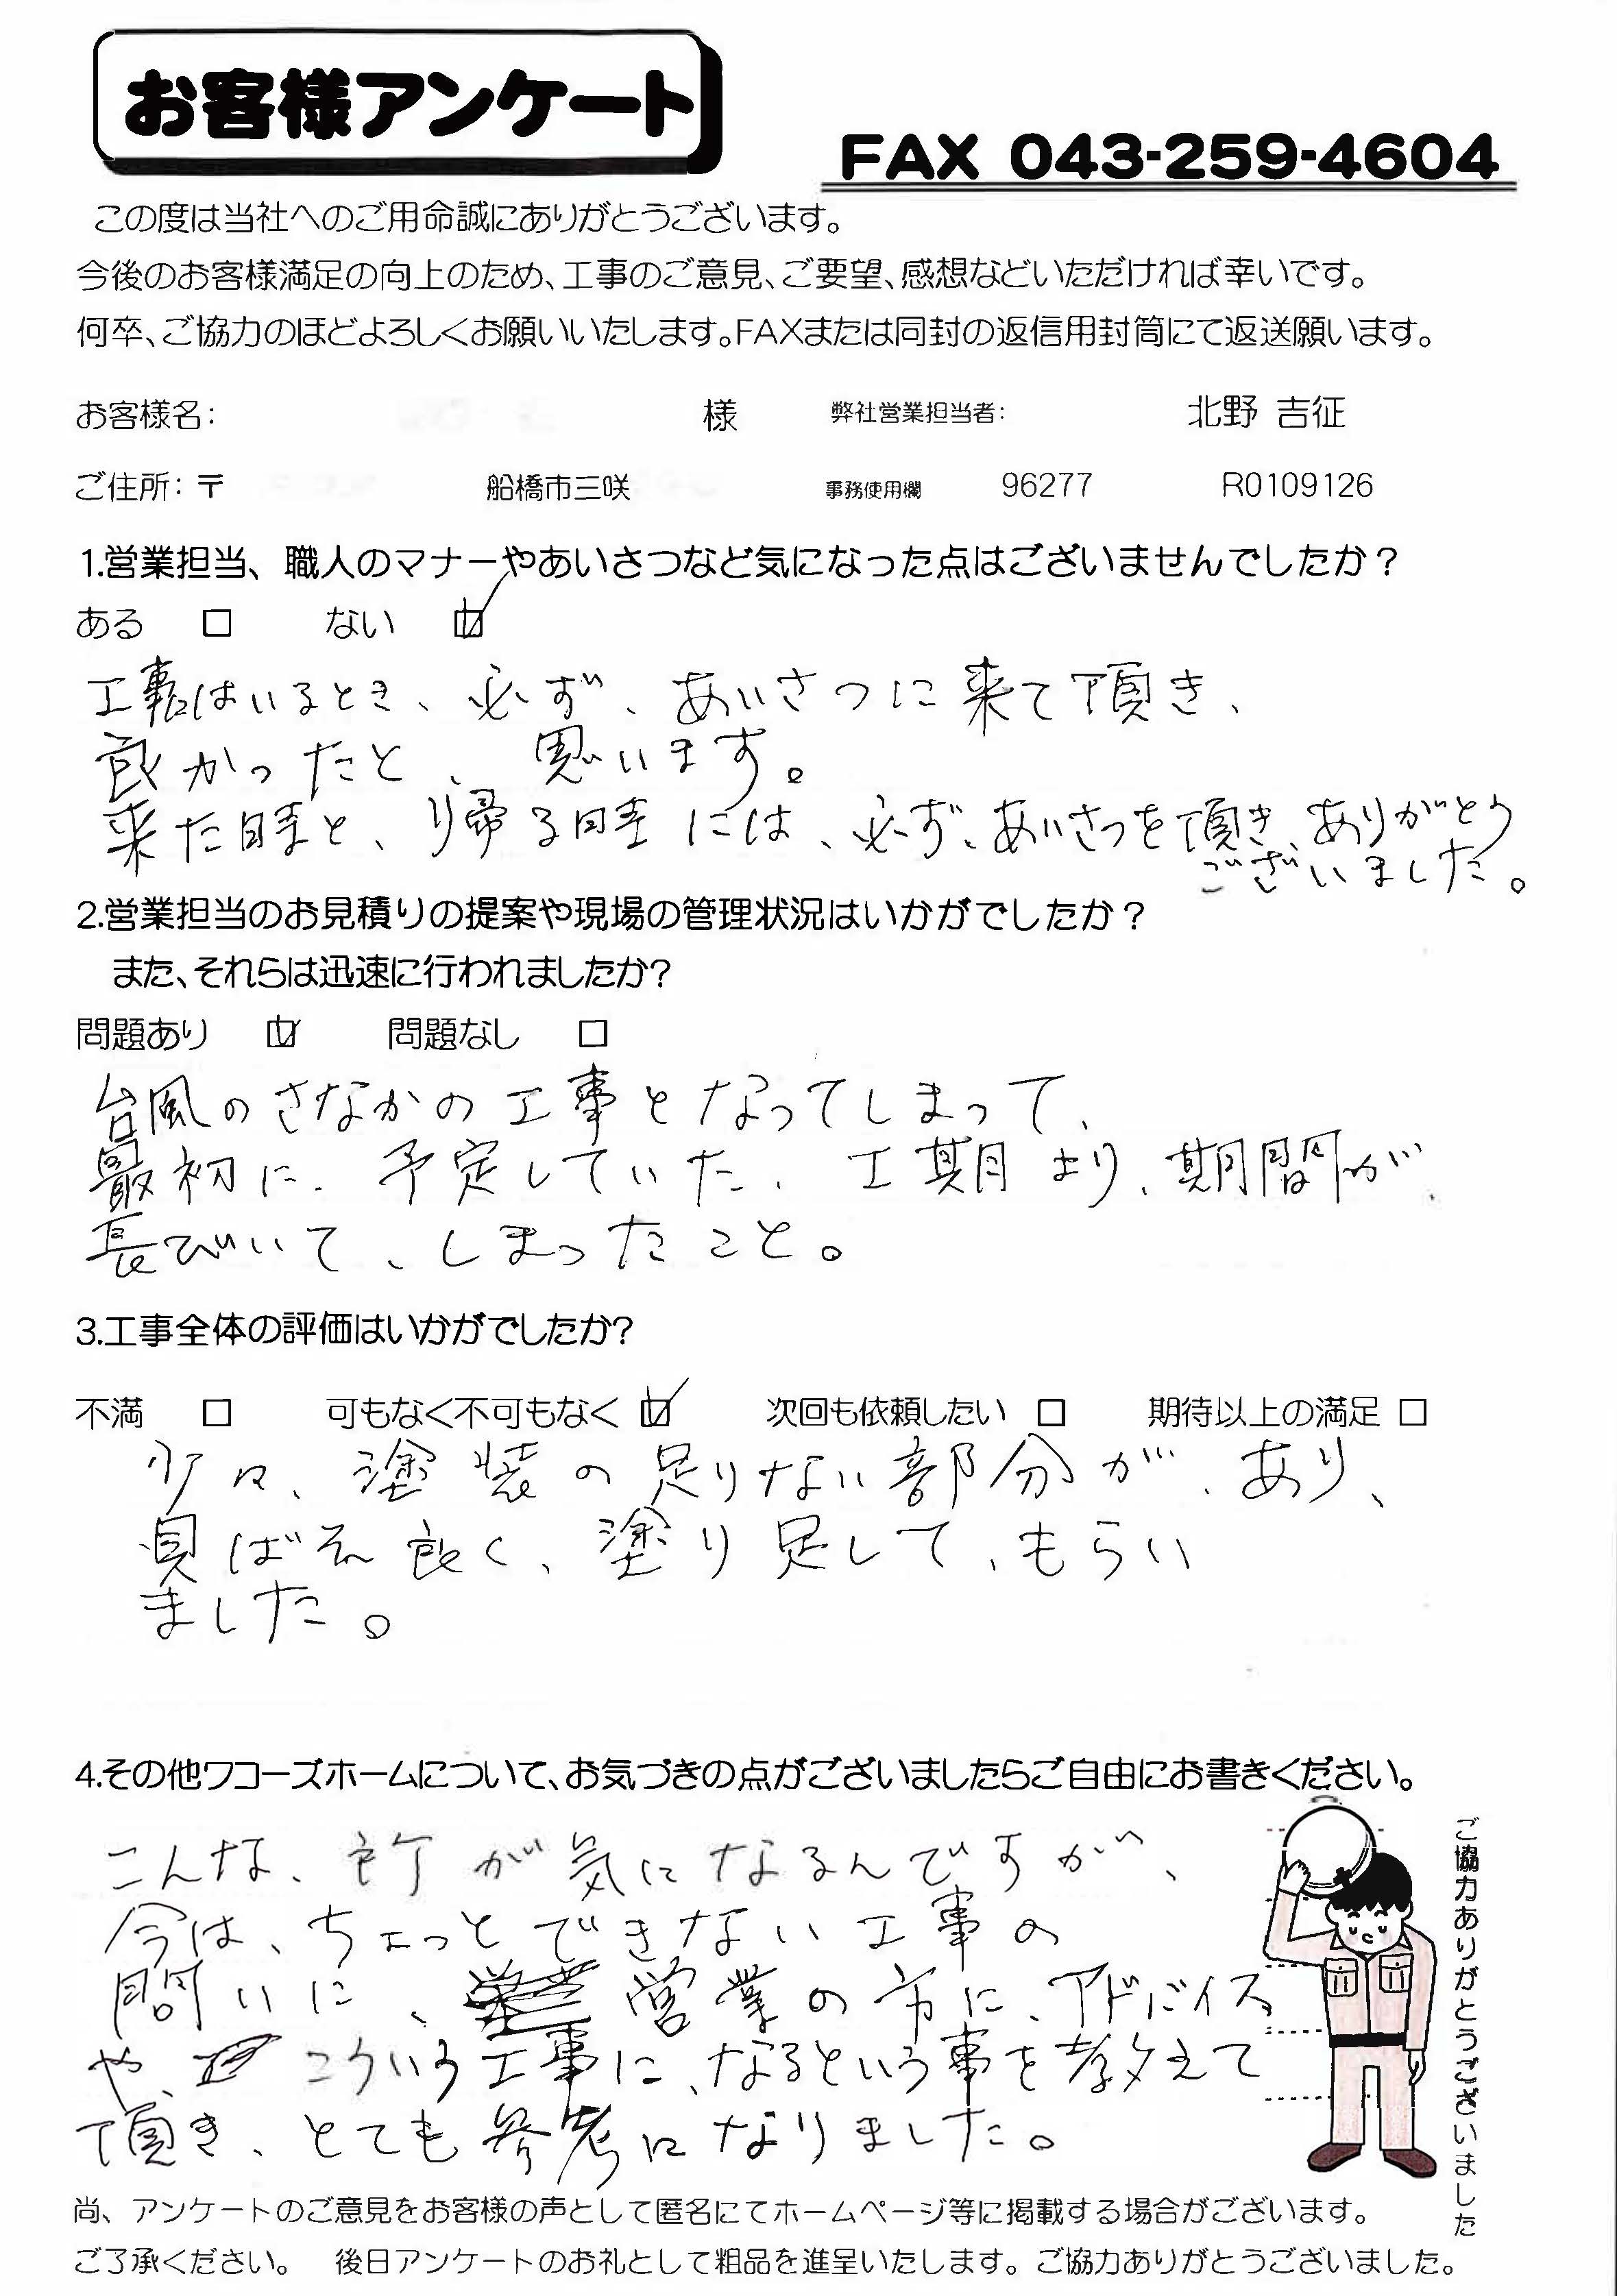 お客様アンケート
FAX 043-259-4604
この度は当社へのご用命誠にありがとうございます。
今後のお客様満足の向上のため、工事のご意見、ご要望、感想などいただければ幸いです。
何卒、ご協力のほどよろしくお願いいたします。FAXまたは同封の返信用封筒にて返送願います。
お客様名: 様 弊社営業担当者: 北野 吉征
ご住所:〒 船橋市三咲 事務使用欄 96277 R0109126
1.営業担当、職人のマナーやあいさつなど気になった点はございませんでしたか?
ある □ ない ☑
工事はいるとき、必ず、あいさつに来て頂き、
良かったと、思います。
来た時と、り帰る時には、必ず、あいさつを頂き、ありがとう
ございました。
2.営業担当のお見積りの提案や現場の管理状況はいかがでしたか?
また、それらは迅速に行われましたか?
問題あり ☑ 問題なし □
台風のさなかの工事となってしまって、
最初に、予定していた、工期より、期間が、
長びいて、しまったこと。
3.工事全体の評価はいかがでしたか?
不満 □ 可もなく不可もなく ☑ 次回も依頼したい □ 期待以上の満足 □
少々、塗装の足りない部分が、あり、
見ばえ良く、塗り足して、もらい
ました。
4.その他ワコーズホームについて、お気づきの点がございましたらご自由にお書きください。
こんな、所が気になるんですが、
今は、ちょっとできない工事の
問いに、営業の方に、アドバイス
や、こういう工事に、なるという事を教えて
頂き、とても参考になりました。
ご協力ありがとうございました
尚、アンケートのご意見をお客様の声として匿名にてホームページ等に掲載する場合がございます。
ご了承ください。 後日アンケートのお礼として粗品を進呈いたします。ご協力ありがとうございました。